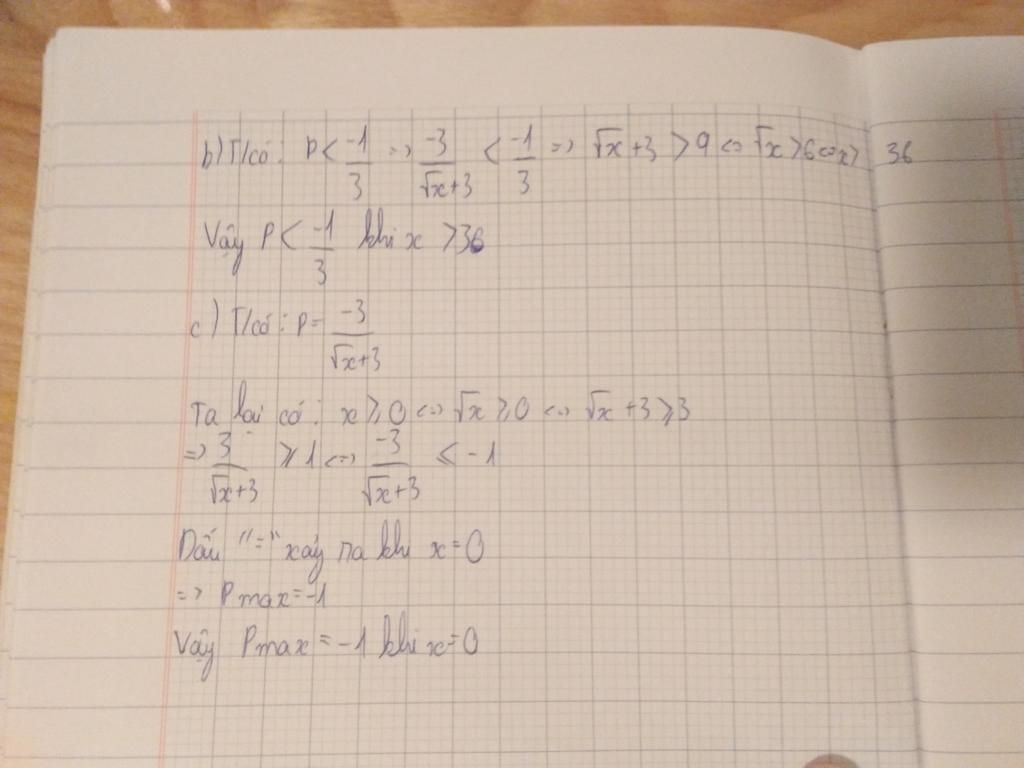 b) T/có: P < -1/3 => -3/(√x+3) < -1/3 => √x+3 > 9 <=> √x > 6 <=> x > 36
Vậy P < -1/3 khi x > 36
c) T/có: P = -3/(√x+3)
Ta lại có: x ≥ 0 <=> √x ≥ 0 <=> √x + 3 ≥ 3
=> 3/(√x+3) ≥ 1 <=> -3/(√x+3) ≤ -1
Dấu "=" xảy ra khi x = 0
=> P max = -1
Vậy P max = -1 khi x = 0